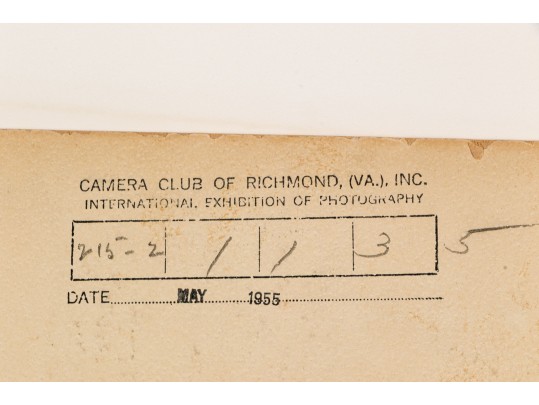 CAMERA CLUB OF RICHMOND, (VA.), INC.
INTERNATIONAL EXHIBITION OF PHOTOGRAPHY
215-2 1 1 3 5
DATE MAY 1955